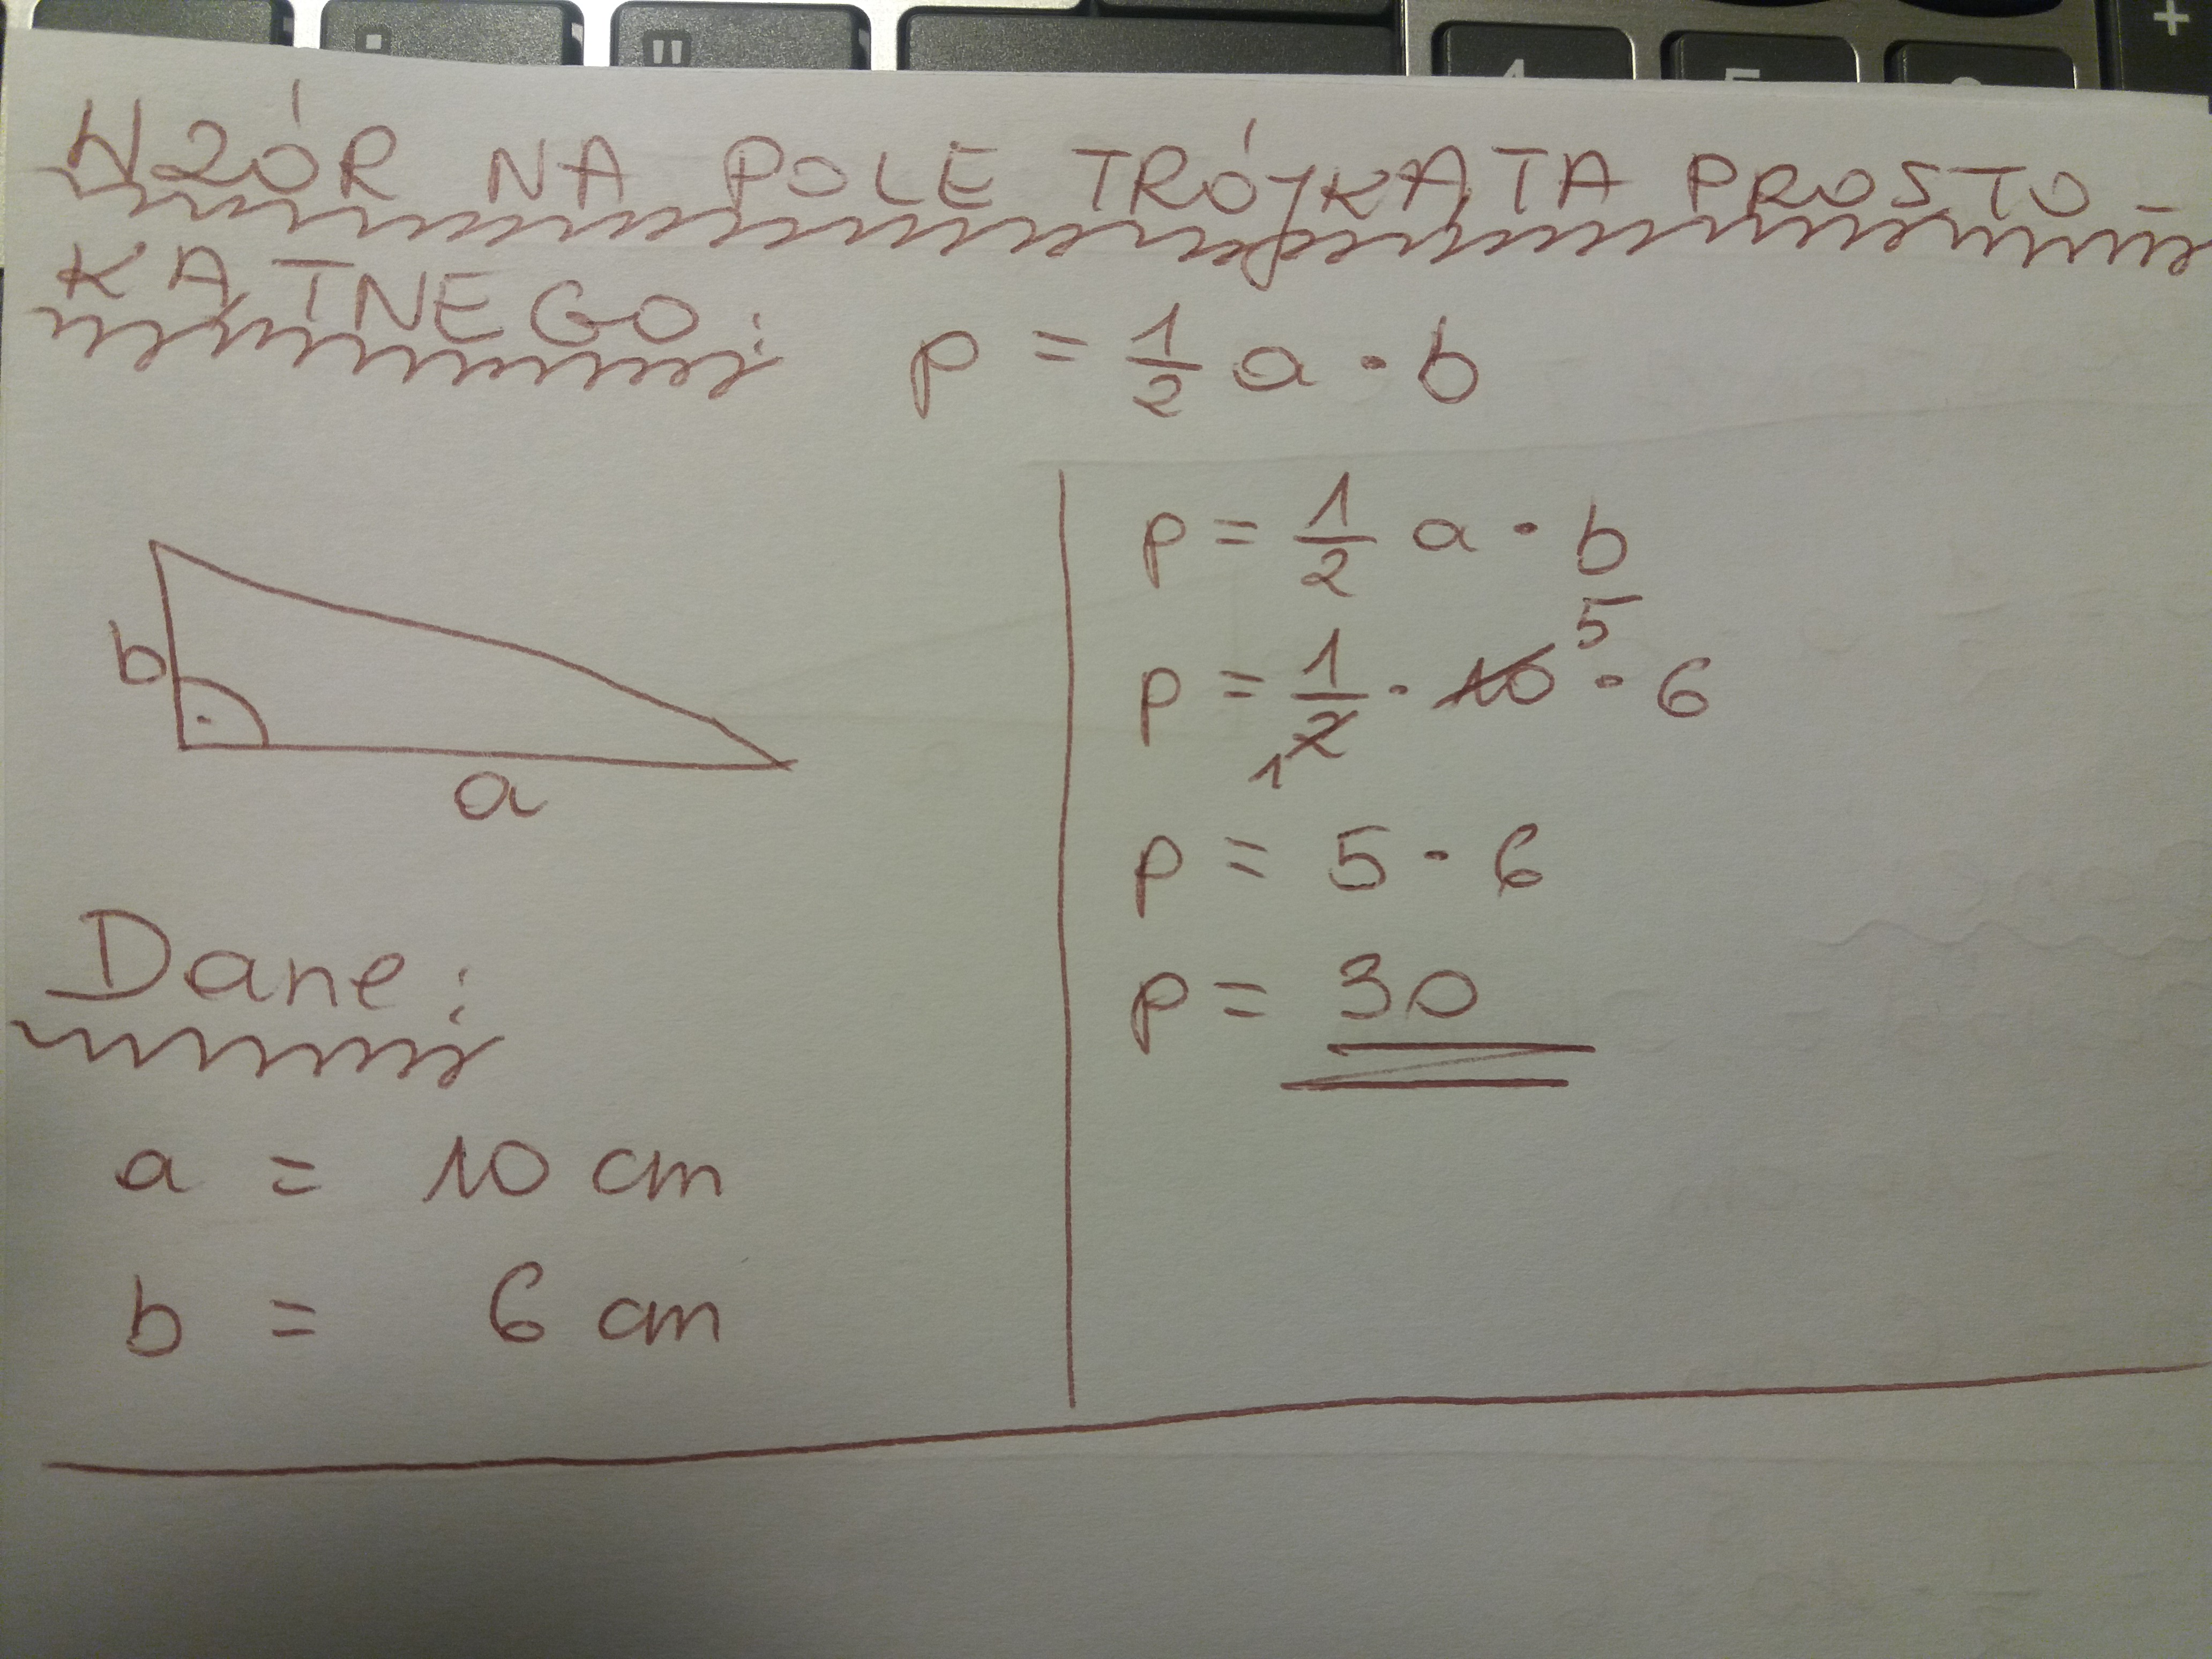 WZÓR NA POLE TRÓJKĄTA PROSTO-
KĄTNEGO: p = 1/2 a · b
b
a
Dane:
a = 10 cm
b = 6 cm
p = 1/2 a · b
p = 1/2 · 10 · 6
5
1
p = 5 · 6
p = 30